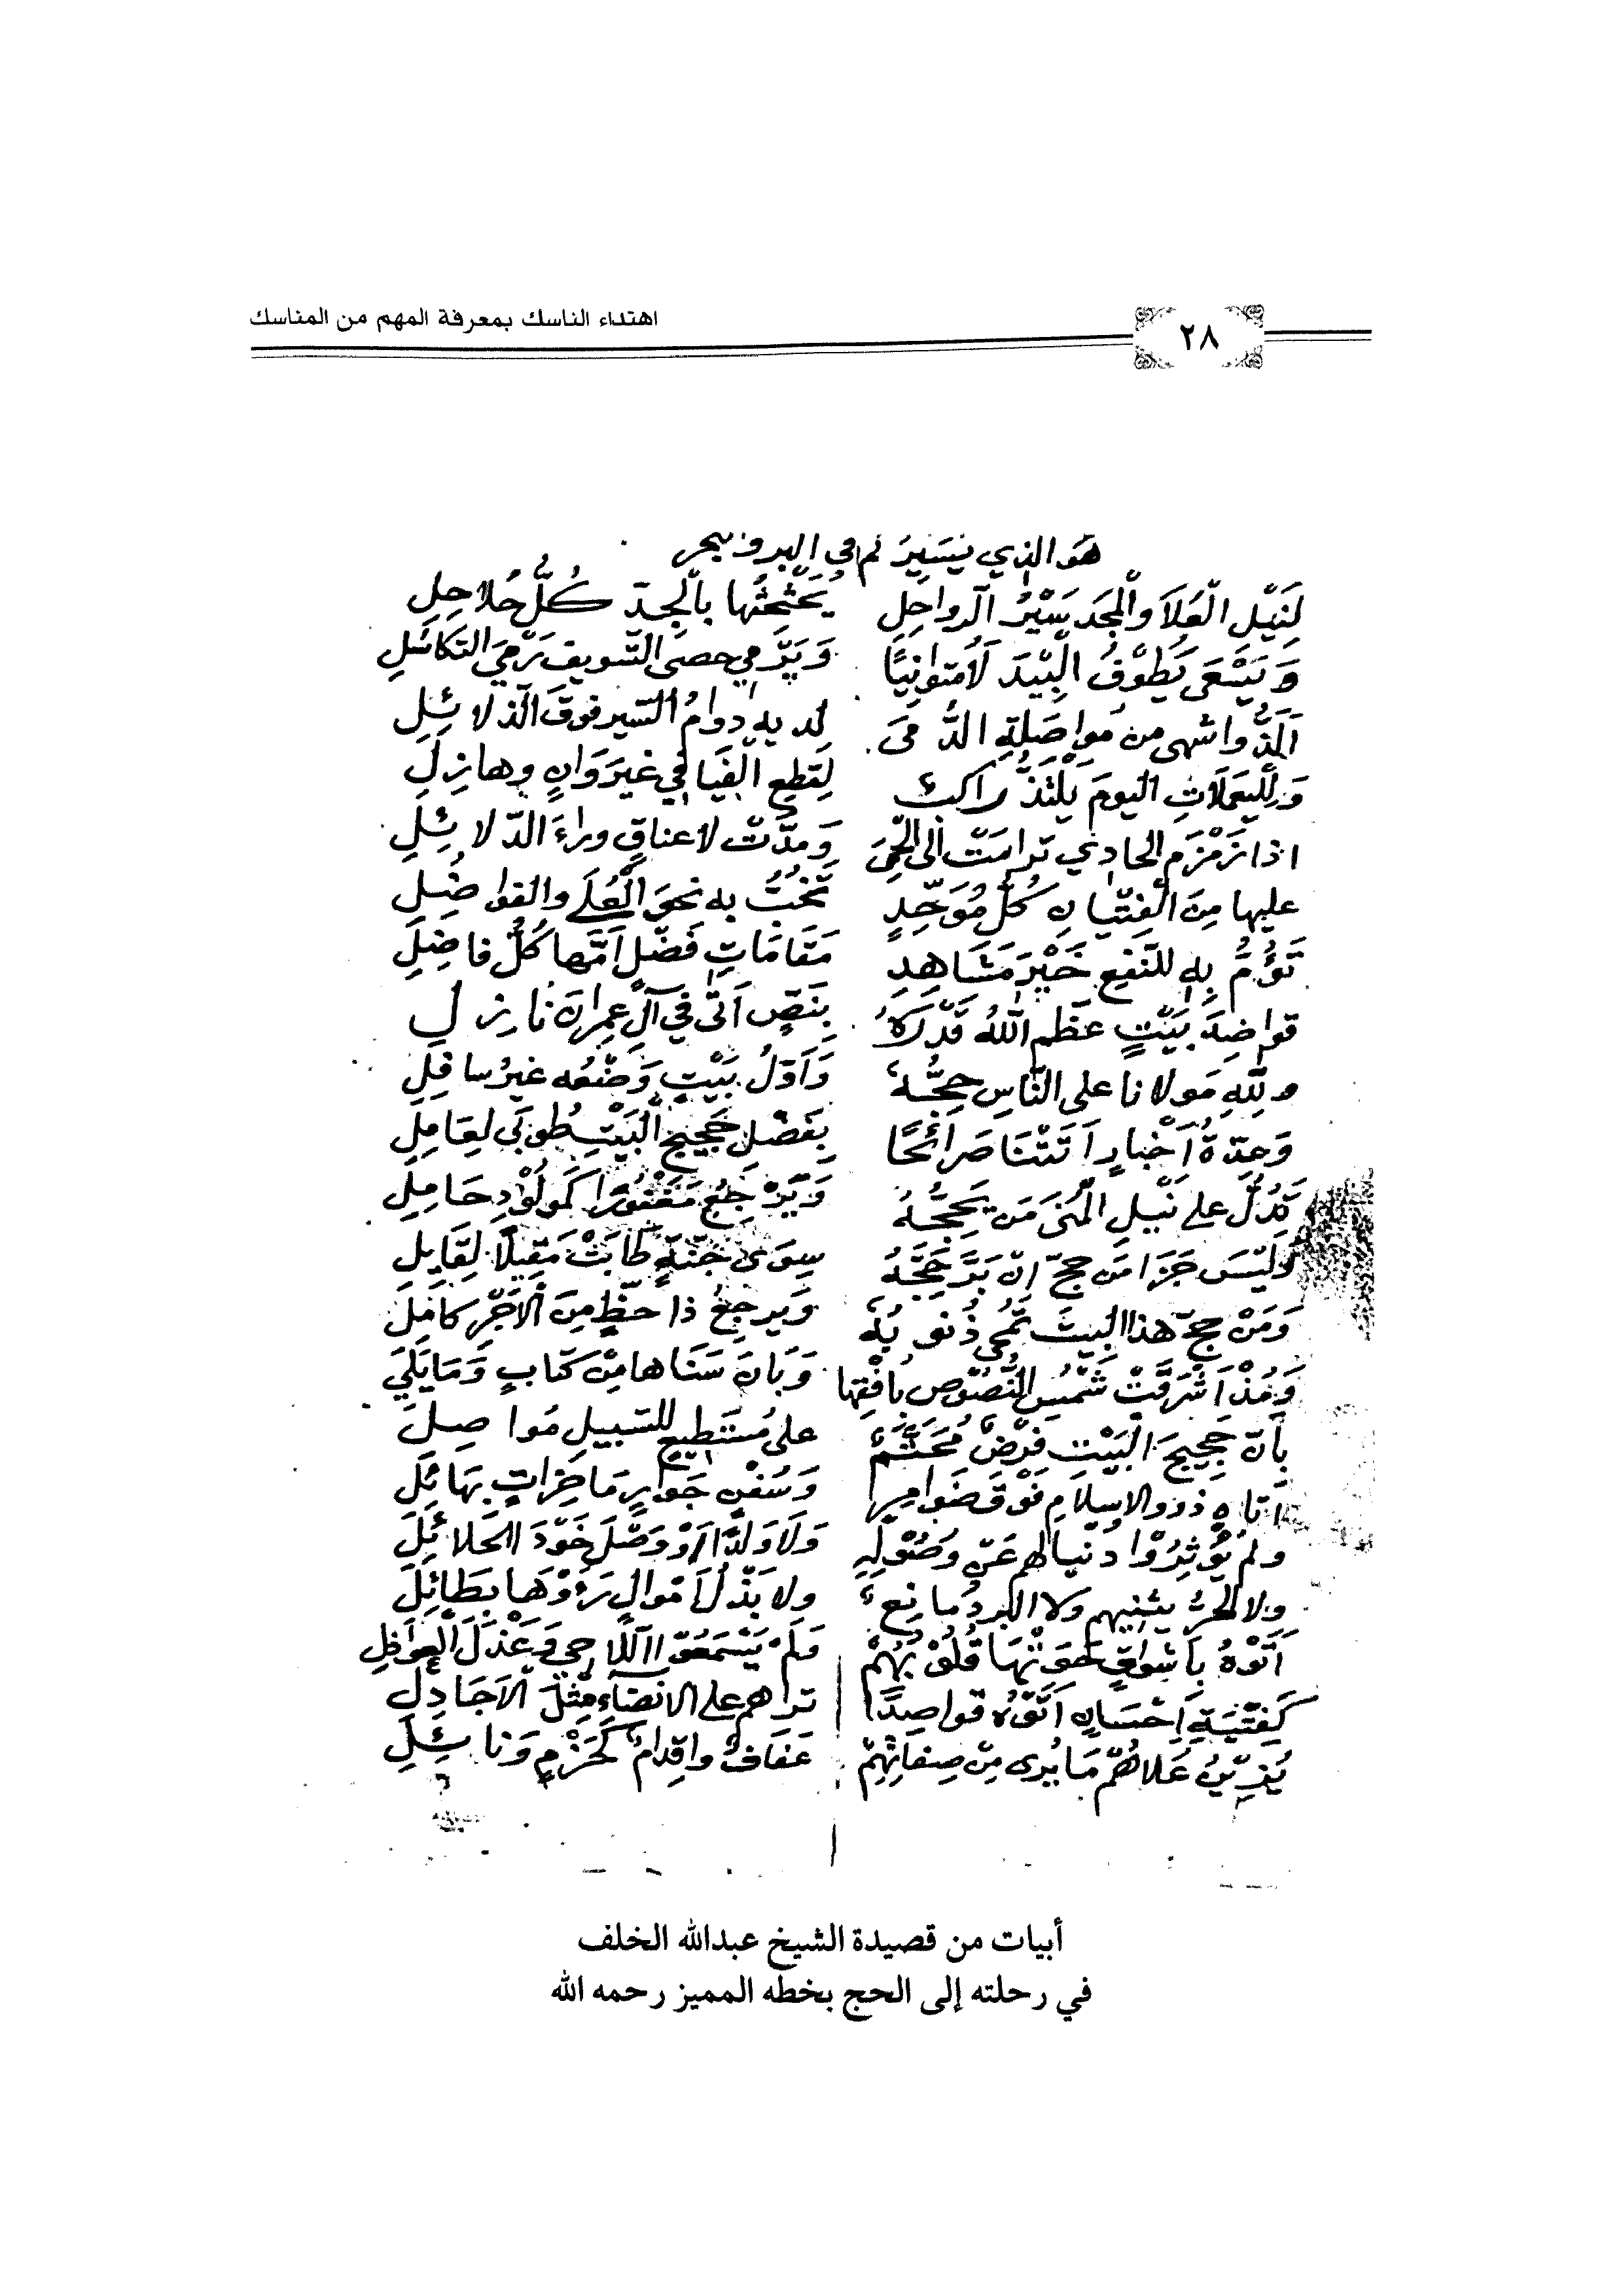 ٢٨
اهتداء الناسك بمعرفة المهم من المناسك
هو الذي يسيركم في البر والبحر
لِنَيْلِ الْعُلَا وَالْمَجْدِ سَيْرُ الرواحِلِ يُحَثْحِثُها بالْجِدّ كُلُّ حُلاحِلِ
وَيَسْعَى يَطُوْفُ الْبِيْدَ لَا مُتوانِيًا وَيَرْمي حصى التسويف رَمْيَ التكاسُلِ
أَلَذُّ وأشهى من مواصَلةِ الدُّمى لديه دوامُ السّير فوقَ الذلائِلِ
وَلِلْيَعملاتِ اليومَ يَلْتَذُّ راكبٌ لِقطعِ الْفَيافي غيرَ وَانٍ وهازِلِ
اذا زَمْزَم الحادي ترامَتْ الى الْحِمَى وَمدَّتْ لأعناقٍ وراءَ الدّلائِلِ
عليها مِنَ الْفِتْيانِ كُلُّ مُوَحِّدٍ تَخُبُّ به نحوَ الْعُلَى والفواضِلِ
تَؤُمُّ بِهِ للنفعِ خَيْرَ مَشَاهِدٍ مَقَامَاتِ فَضْلٍ أَمَّها كُلُّ فاضِلِ
قواضِدَ بَيْتٍ عظّم اللهُ قَدْرَهُ بِنَصٍّ أتى في آلِ عِمرانَ نازِلِ
وللهِ مولانا على النّاسِ حِجُّهُ وَأوّلُ بَيْتٍ وَضْعُه غيرُ سافِلِ
وَعِدّةُ أخْبارٍ أَتَتْنَا صَرائحًا بِفَضْلِ حَجِيجِ الْبَيْتِ طُوبَى لِعَامِلِ
تَدُلُّ على نَيْلِ الْمُنَى مَن يَحِجُّهُ وَيَرْجِعُ مَغْفُورًا كَمولُوْدِ حَامِلِ
وَلَيْسَ جَزَا مَن حجّ إن بَرَّ حَجُّهُ سِوَى جَنّةٍ طَابَتْ مَقِيلًا لِقَايِلِ
وَمَنْ حجّ هذا البيتَ تُمحى ذُنوبُهُ وَيرجِعُ ذا حظٍّ مِنَ الْأَجْرِ كامِلِ
وَمُذْ أَشْرَقَتْ شَمْسُ النُّصُوْصِ بأُفْقِها وَبَانَ سَنَاها مِنْ كتابٍ وَمَا يَلي
بأنّ حَجِيجَ الْبَيْتِ فَرْضٌ مُحَتَّمٌ على مُسْتَطِيعٍ للسّبيلِ مُواصِلِ
أتاه ذوو الإسلامِ فَوْقَ ضَوامِرٍ وَسُفْنٍ جَوَارٍ مَاخِرَاتٍ بِهَائِلِ
ولم يُؤْثِرُوْا دُنْيا لهم عَنْ وُصُوْلِهِ وَلَا وَلَدًا أَوْ وَصْلَ خَوْدَ الحلائِلِ
ولا الحرُّ يثنيهم ولا البردُ مانِعٌ ولا بَذْلُ أَمْوالٍ رَءَوْهَا بِطَائِلِ
أَتَوْهُ بأشواقٍ حَوَتْهَا قُلُوْبُهُمْ وَلَمْ يَسْمَعُوْا اللاحي وَعَذْلَ الْعواذِلِ
كَفِتْيَةِ إحْسَانٍ أَتَوْهُ قواصِدًا تراهم على الانضَاءِ مِثْلَ الْأَجَادِلِ
يُزيّنُ عُلاهُمْ مَا يُرى مِنْ صِفاتِهِمْ عَفَافٌ وإقْدامٌ كَحَزْمٍ وَنائِلِ
أبيات من قصيدة الشيخ عبدالله الخلف
في رحلته إلى الحج بخطه المميز رحمه الله